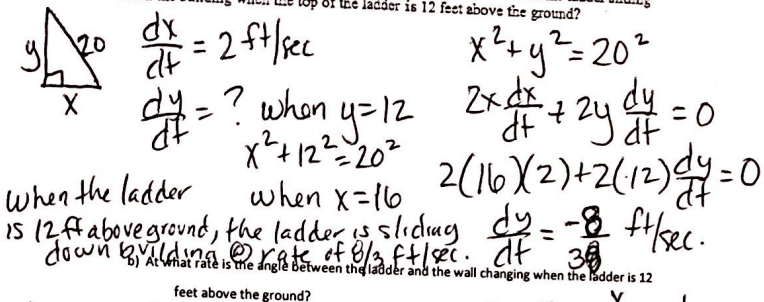 top of the ladder is 12 feet above the ground?
y 20 x
dx/dt = 2 ft/sec
x² + y² = 20²
dy/dt = ? when y=12
2x dx/dt + 2y dy/dt = 0
x² + 12² = 20²
when x=16
2(16)(2)+2(12)dy/dt = 0
dy/dt = -8/3 ft/sec.
when the ladder
is 12 ft above ground, the ladder is sliding
down building @ rate of 8/3 ft/sec.
b) At what rate is the angle between the ladder and the wall changing when the ladder is 12
feet above the ground?